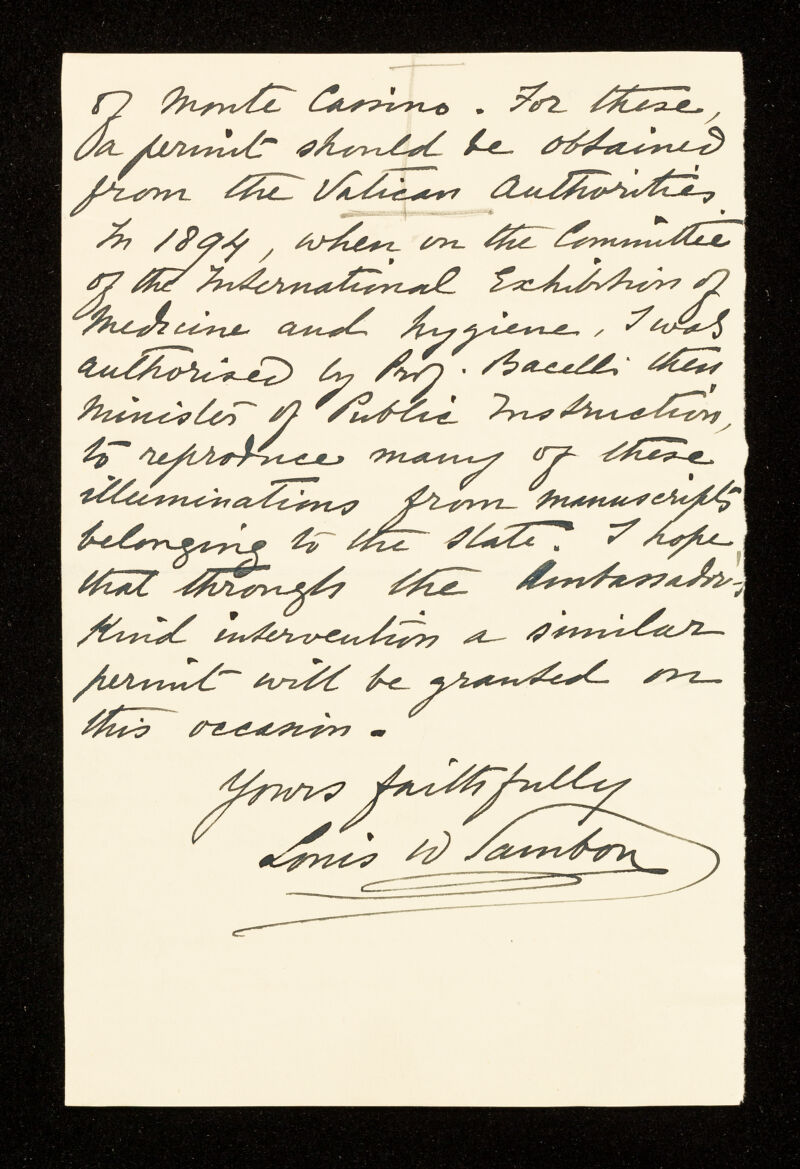 of Monte Cassino. For these,
a permit should be obtained
from the Vatican Authorities
In 1894, when on the Committee
of the International Exhibition of
Medicine and hygiene, I was
authorised by Prof. Bacelli then
minister of Public Instruction,
to reproduce many of these
illuminations from manuscripts
belonging to the State. I hope
that through the Ambassador's
kind intervention a similar
permit will be granted on
this occasion.
Yours faithfully
Louis W Sambon